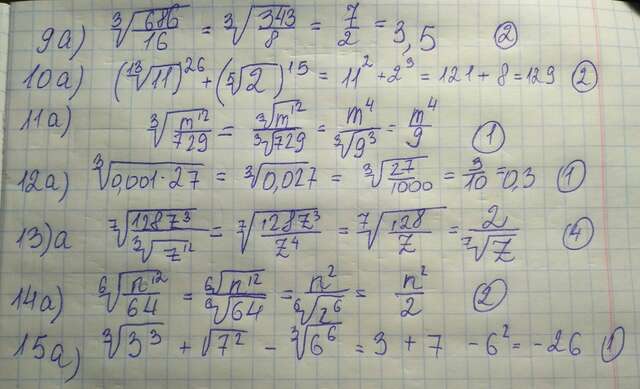 9а) ∛(686/16) = ∛(343/8) = 7/2 = 3,5 ②
10а) (¹³√11)²⁶ + (⁵√2)¹⁵ = 11² + 2³ = 121 + 8 = 129 ②
11а) ∛(m¹²/729) = ∛m¹²/∛729 = m⁴/∛9³ = m⁴/9 ①
12а) ∛(0,001·27) = ∛0,027 = ∛(27/1000) = 3/10 = 0,3 ①
13)а ⁷√(128z³/∛z¹²) = ⁷√(128z³/z⁴) = ⁷√(128/z) = 2/⁷√z ④
14а) ⁶√(n¹²/64) = ⁶√n¹²/⁶√64 = n²/⁶√2⁶ = n²/2 ②
15а) ∛3³ + √7² − ∛6⁶ = 3 + 7 − 6² = −26 ①